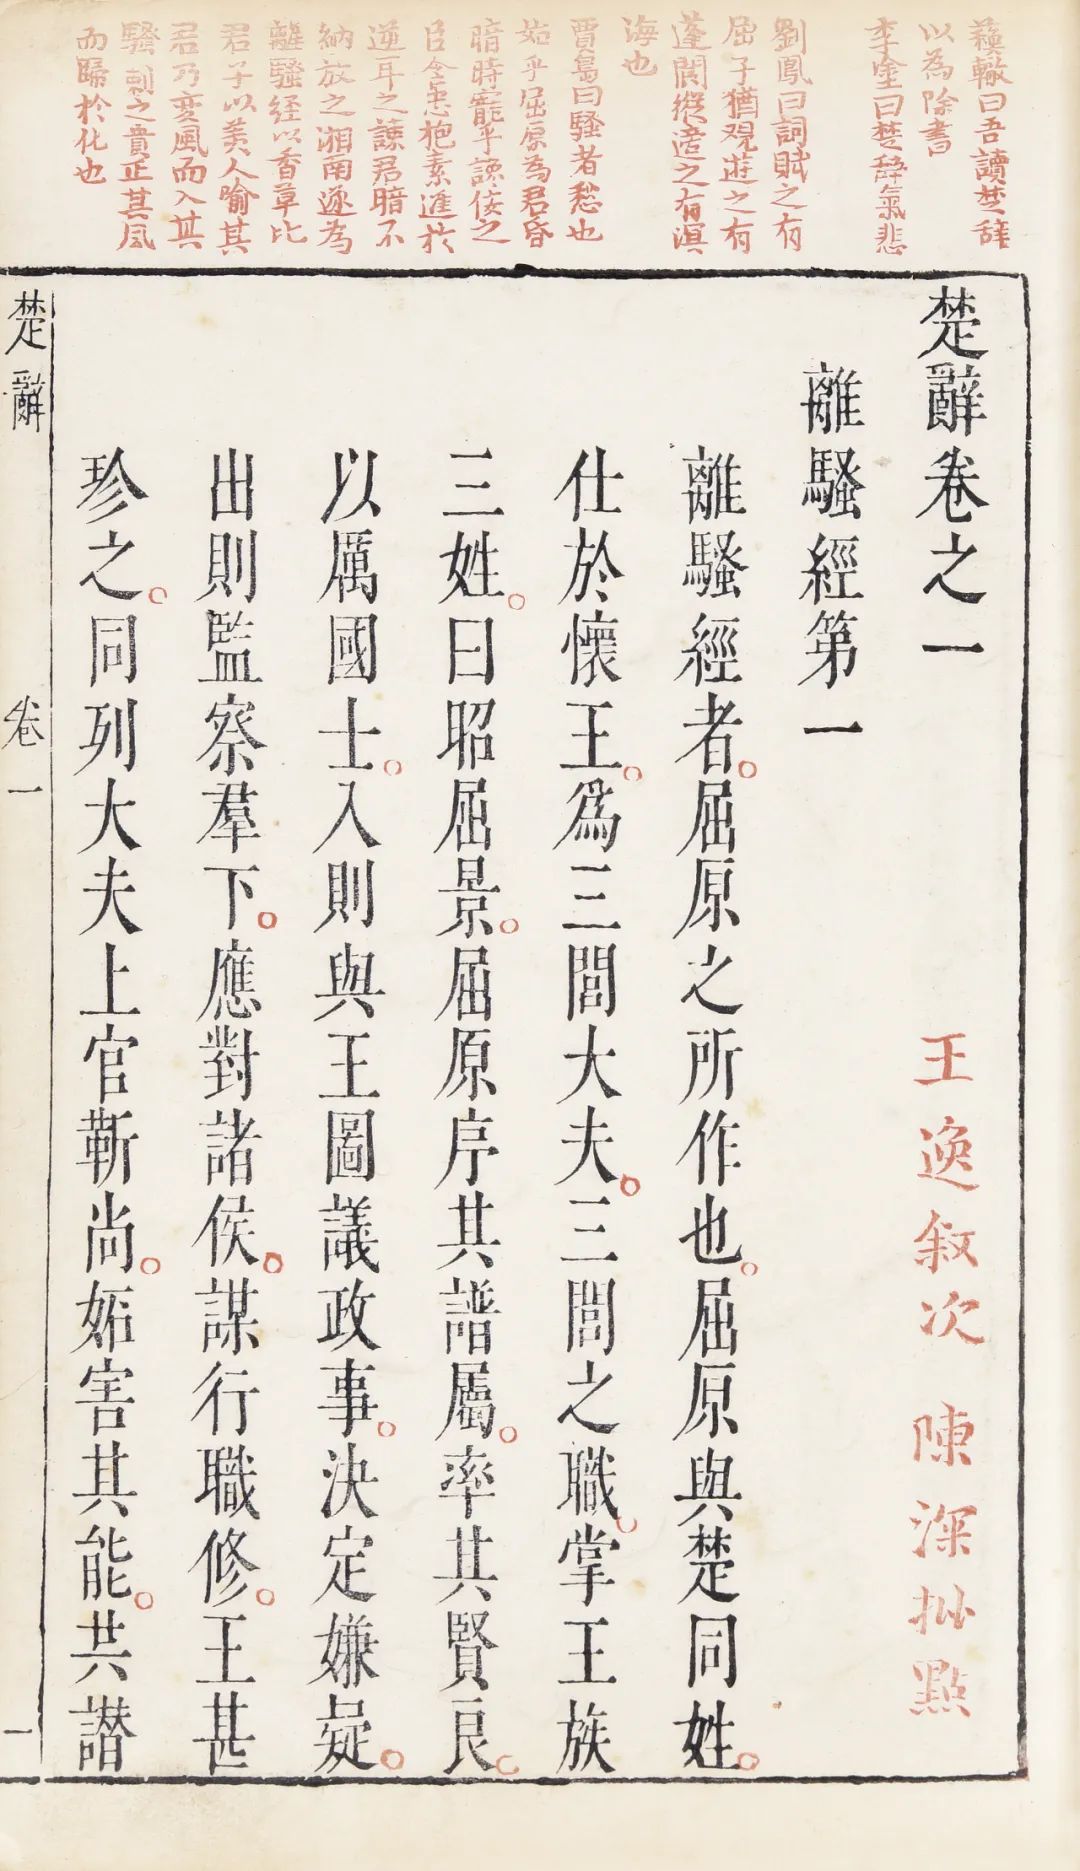 蘓轍曰吾讀楚辞
以為除書
李塗曰楚辞氣悲
劉鳳曰詞賦之有
屈子猶觀遊之有
蓬閬縱適之有溟
海也
賈島曰騷者愁也
始乎屈原為君昏
暗時寵乎讒佞之
臣含忠抱素進於
逆耳之諫君暗不
納放之湘南遂為
離騷経以香草比
君子以美人喻其
君乃变風而入其
騷刺之貴正其風
而歸於化也
楚辭卷之一
王逸叙次 陳深批點
離騷經第一
離騷經者屈原之所作也屈原與楚同姓
仕於懷王爲三閭大夫三閭之職掌王族
三姓曰昭屈景屈原序其譜屬率其賢良
以厲國士入則與王圖議政事決定嫌疑
出則監察羣下應對諸侯謀行職修王甚
珍之同列大夫上官靳尚妬害其能共譖
楚辭
卷一
一